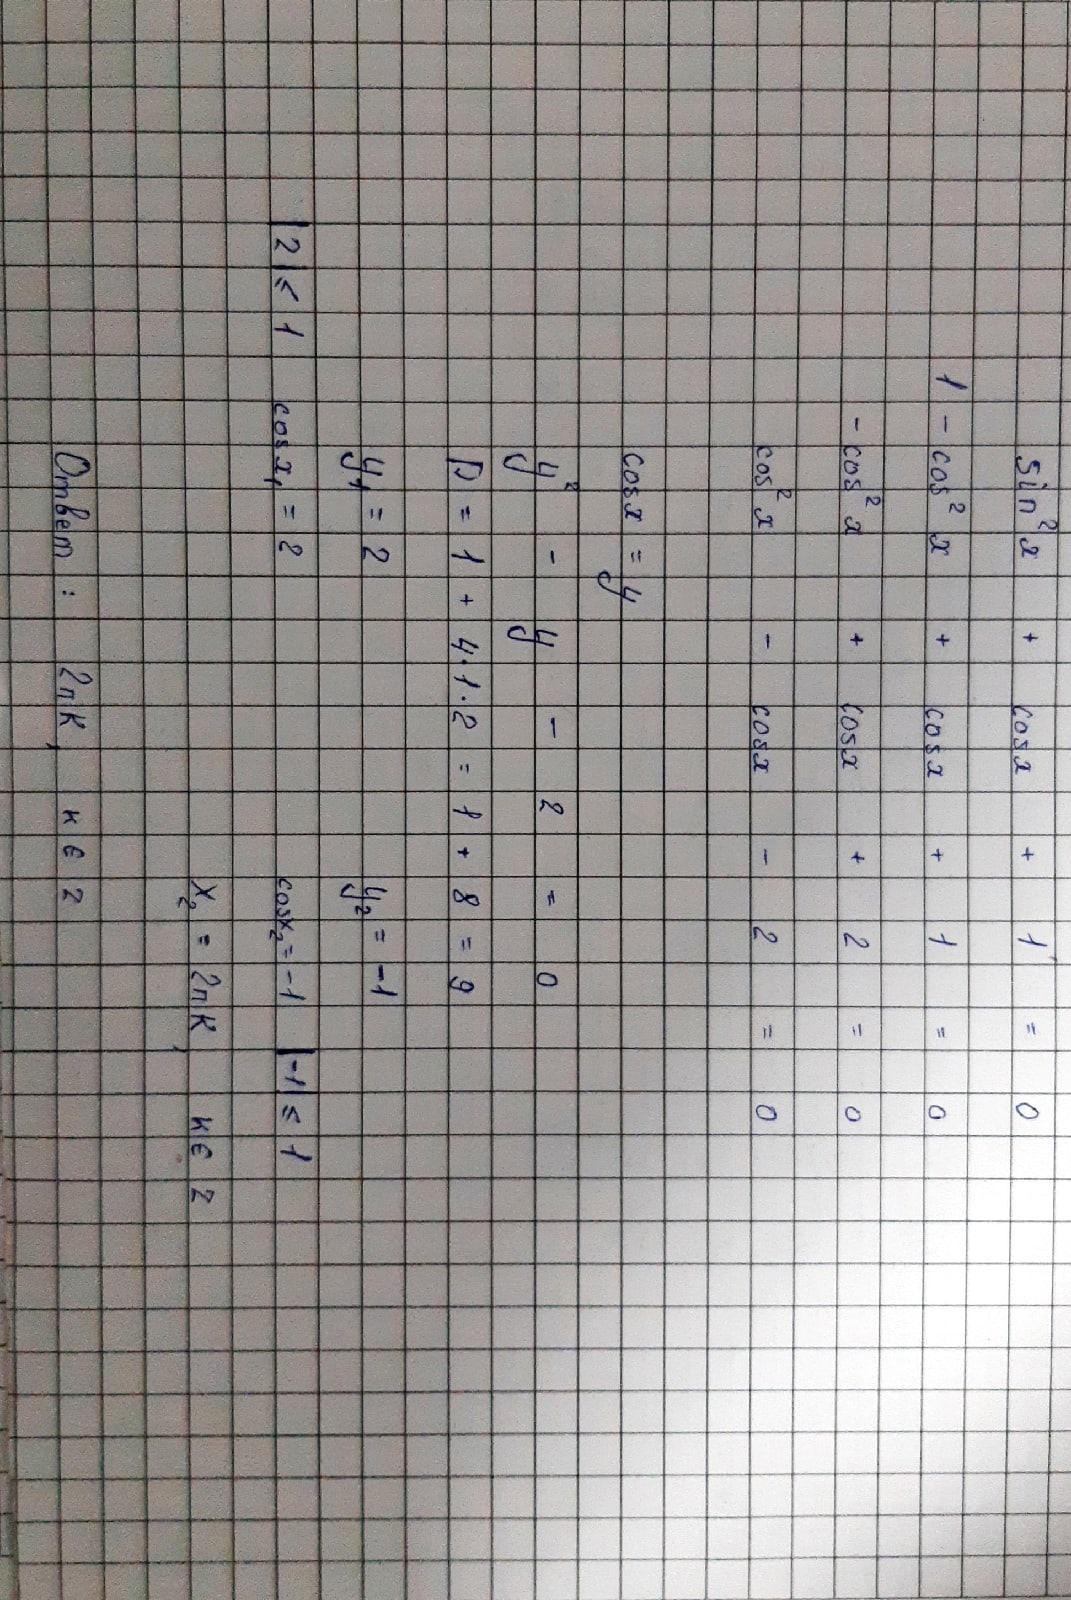 sin²x + cosx + 1 = 0
1 - cos²x + cosx + 1 = 0
-cos²x + cosx + 2 = 0
cos²x - cosx - 2 = 0
cosx = y
y² - y - 2 = 0
D = 1 + 4·1·2 = 1 + 8 = 9
y₁ = 2 y₂ = -1
|2| ≤ 1 cosx₁ = 2 cosx₂ = -1 |-1| ≤ 1
x₂ = 2πk, k ∈ Z
Ответ: 2πk, k ∈ Z